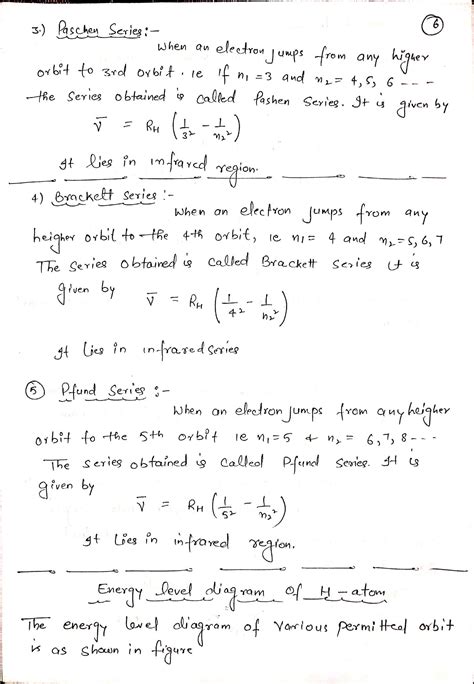 6
3.) Paschen Series:-
When an electron jumps from any higher
orbit to 3rd orbit. ie if n₁ = 3 and n₂ = 4, 5, 6 ---
the series obtained is called Pashen Series. It is given by
ν̅ = R_H (1/3² - 1/n₂²)
It lies in infrared region.
4) Brackett Series :-
When an electron jumps from any
heigher orbit to the 4th orbit, ie n₁ = 4 and n₂ = 5, 6, 7
The series obtained is called Brackett Series it is
given by ν̅ = R_H (1/4² - 1/n₂²)
It lies in infrared series
5 Pfund Series :-
When an electron jumps from any heigher
orbit to the 5th orbit ie n₁ = 5 & n₂ = 6, 7, 8 ---
The series obtained is called Pfund Series. It is
given by
ν̅ = R_H (1/5² - 1/n₂²)
It lies in infrared region.
Energy level diagram of H-atom
The energy level diagram of various permitted orbit
is as shown in figure